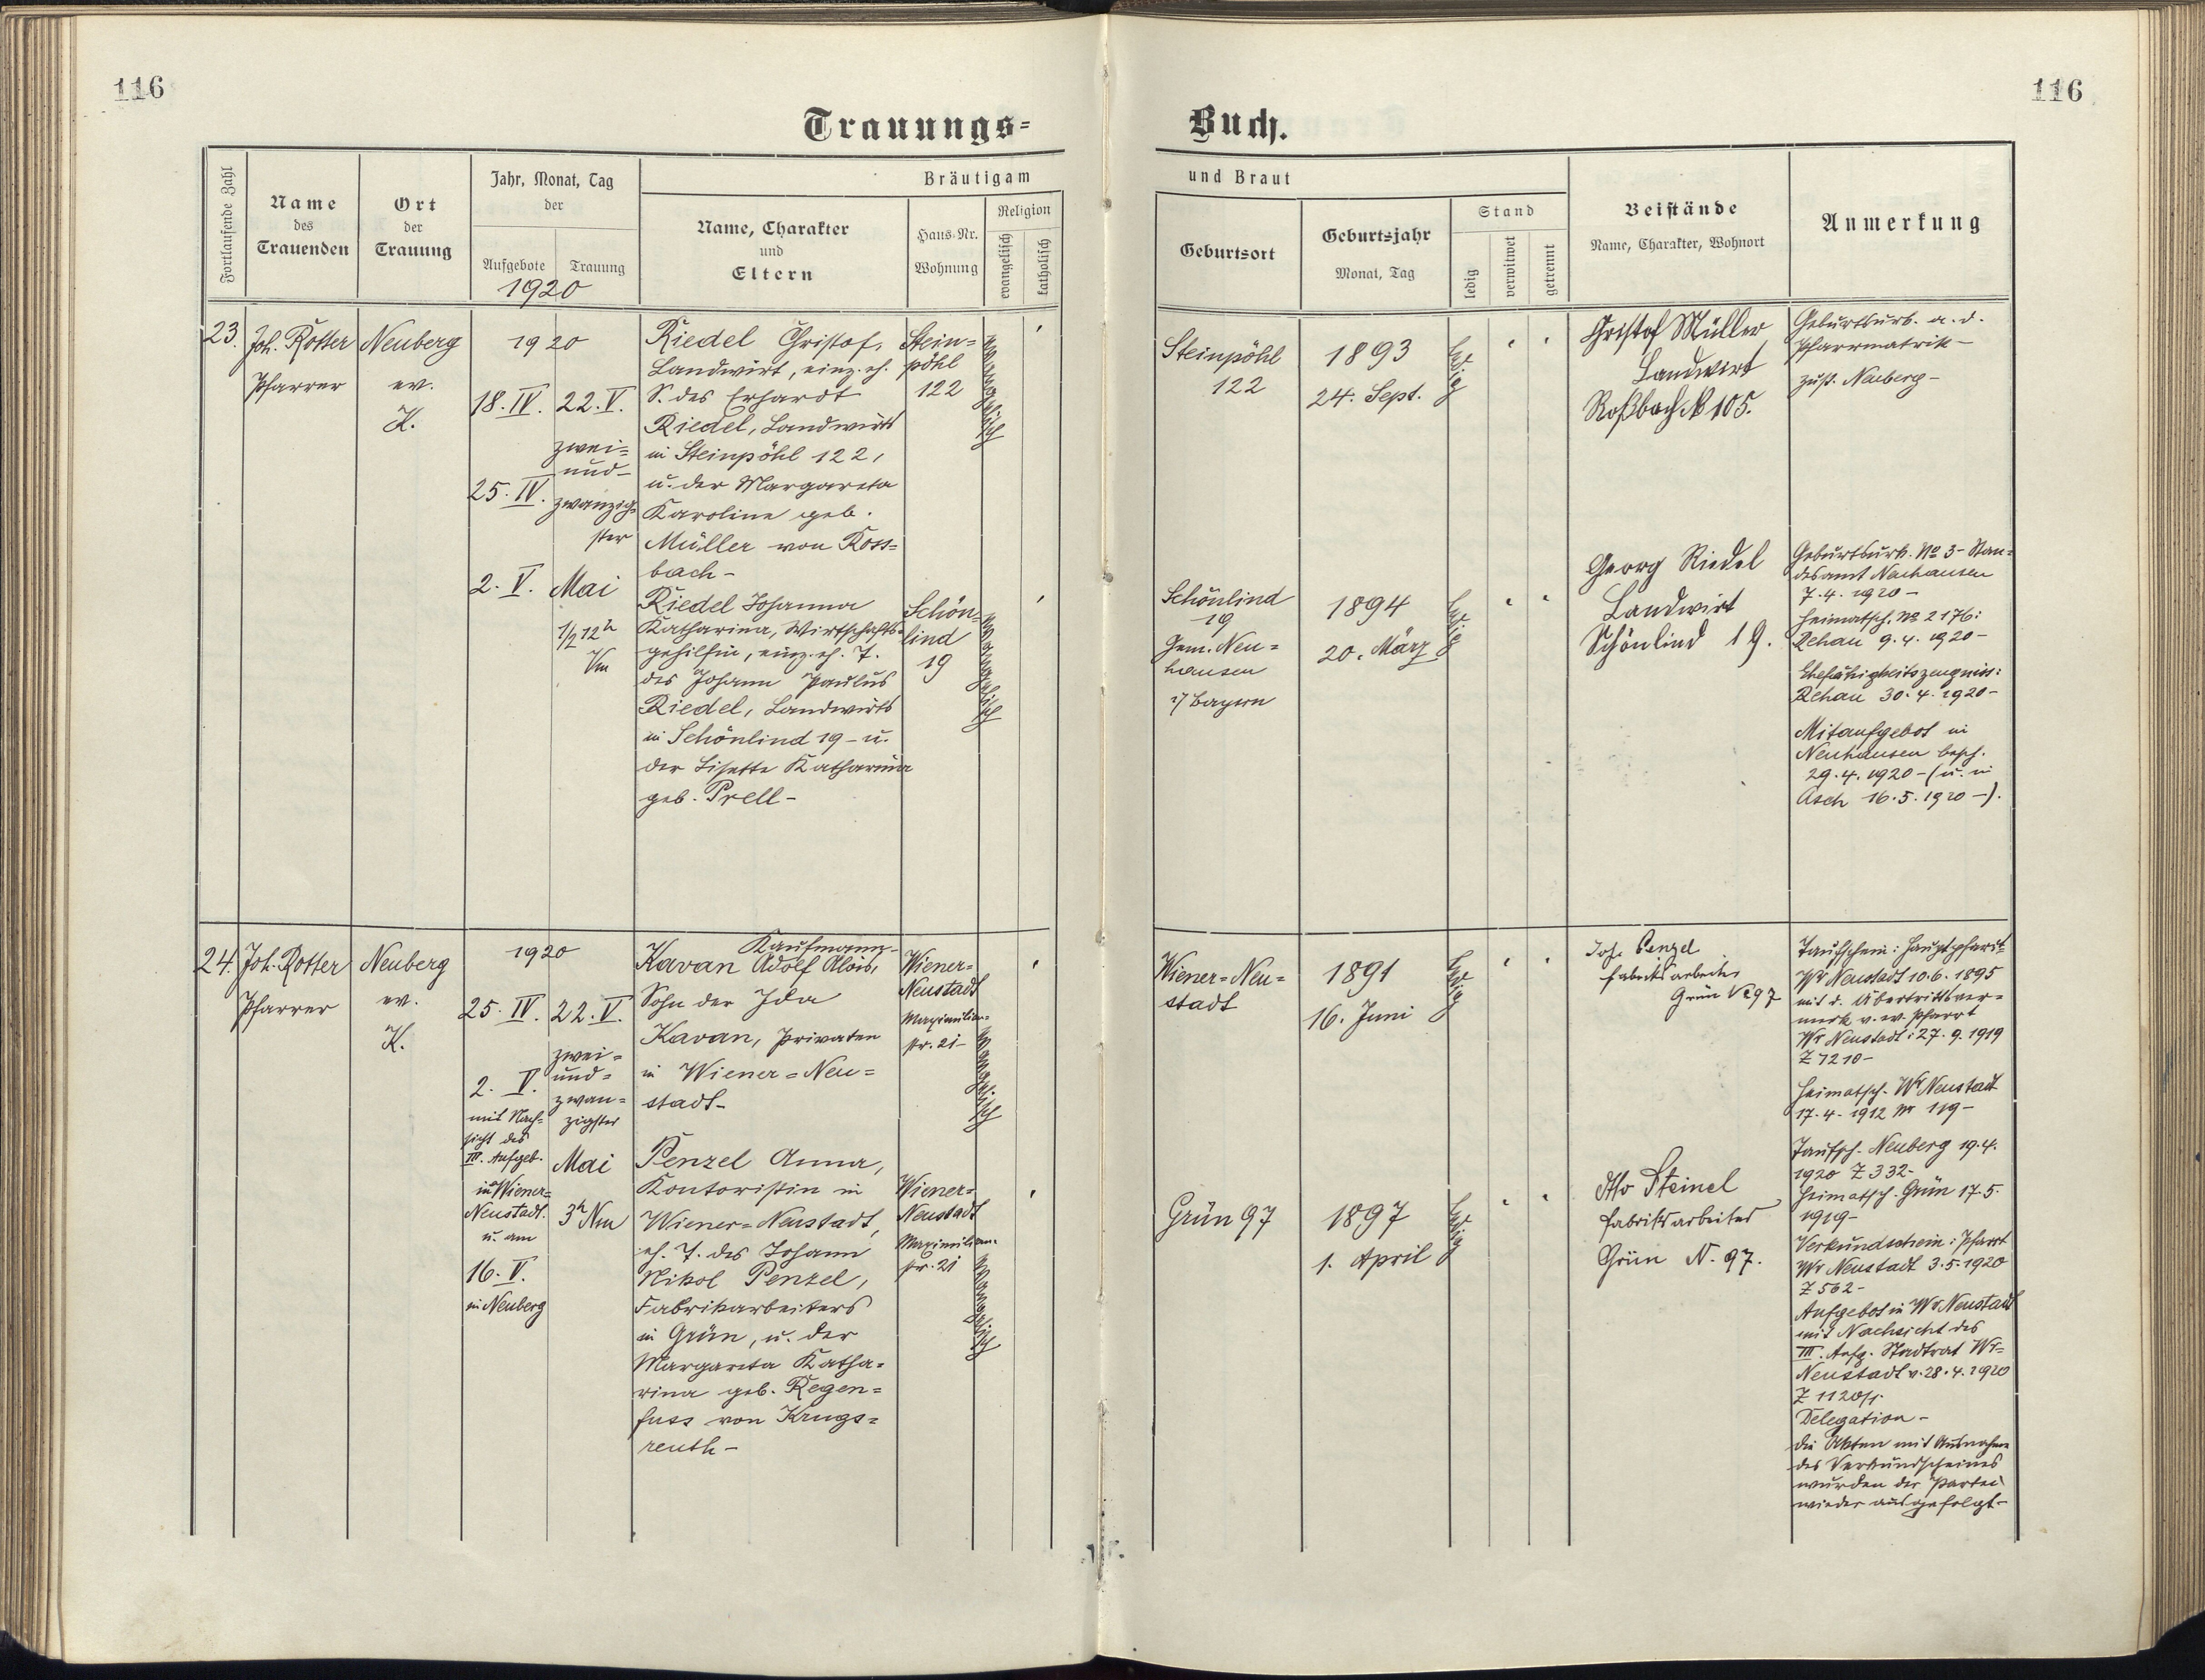 116
116
Trauungs=
Buch.
Fortlaufende Zahl
Name
des
Trauenden
Ort
der
Trauung
Jahr, Monat, Tag
der
Aufgebote
Trauung
1920
Bräutigam
Name, Charakter
und
Eltern
Haus-Nr.
Wohnung
Religion
evangelisch
katholisch
und Braut
Geburtsort
Geburtsjahr
Monat, Tag
Stand
ledig
verwitwet
getrennt
Beistände
Name, Charakter, Wohnort
Anmerkung
23.
Joh. Rotter
Pfarrer
Neuberg
ev.
K.
1920
18. IV.
25. IV.
2. V.
22. V.
zwei=
und=
zwanzig=
ster
Mai
1/2 12h
Vm
Riedel Christof,
Landwirt, einz. eh.
S. des Erhardt
Riedel, Landwirts
in Steinpöhl 122,
u. der Margareta
Karoline geb.
Müller von Ross=
bach -
Stein=
pöhl
122
evangelisch
Steinpöhl
122
1893
24. Sept.
ledig
Christof Müller
Landwirt
Roßbach N 105.
Geburtsurk. a. d.
Pfarrmatrik -
zust. Neuberg -
Riedel Johanna
Katharina, Wirtschafts=
gehilfin, einz. eh. T.
des Johann Paulus
Riedel, Landwirts
in Schönlind 19 - u.
der Lisette Katharina
geb. Prell -
Schön=
lind
19
evangelisch
Schönlind
19
Gem. Neu=
hausen
i/ Bayern
1894
20. März
ledig
Georg Riedel
Landwirt
Schönlind 19.
Geburtsurk. No 3 - Stan=
desamt Neuhausen
7. 4. 1920 -
Heimatsch. No 2176:
Rehau 9. 4. 1920 -
Ehefähigkeitszeugnis:
Rehau 30. 4. 1920 -
Mitaufgebot in
Neuhausen besch.
29. 4. 1920 - (u. in
Asch 16. 5. 1920 -).
24.
Joh. Rotter
Pfarrer
Neuberg
ev.
K.
1920
25. IV.
2. V.
mit Nach=
sicht des
III. Aufgeb.
in Wiener=
Neustadt.
u. am
16. V.
in Neuberg
22. V.
zwei=
und=
zwan=
zigster
Mai
3h Nm
Kaufmann -
Kavan Adolf Alois,
Sohn der Ida
Kavan, Privaten
in Wiener=Neu=
stadt -
Wiener=
Neustadt
Maximilian=
str. 21 -
evangelisch
Wiener=Neu=
stadt
1891
16. Juni
ledig
Joh. Penzel
Fabriksarbeiter
Grün No 97
Taufschein: Hauptpfarrt
Wr Neustadt 10. 6. 1895
mit d. Übertrittsver=
merk v. ev. Pfarrt
Wr Neustadt: 27. 9. 1919
Z 7210 -
Heimatsch. Wr Neustadt
17. 4. 1912 Nr 119 -
Penzel Anna,
Kontoristin in
Wiener=Neustadt,
eh. T. des Johann
Nikol Penzel,
Fabrikarbeiters
in Grün, u. der
Margareta Katha=
rina geb. Regen=
fuss von Krugs=
reuth -
Wiener=
Neustadt
Maximilian=
str. 21
evangelisch
Grün 97
1897
1. April
ledig
Otto Steinel
Fabriksarbeiter
Grün N. 97.
Taufsch. Neuberg 19. 4.
1920 Z 332 -
Heimatsch. Grün 17. 5.
1919 -
Verkundschein: Pfarrt
Wr Neustadt 3. 5. 1920
Z 562 -
Aufgebot in Wr Neustadt
mit Nachsicht des
III. Aufg. Stadtrat Wr=
Neustadt v. 28. 4. 1920
Z 1120/1.
Delegation -
Die Akten mit Ausnahme
des Verkundscheines
wurden der Partei
wieder ausgefolgt -